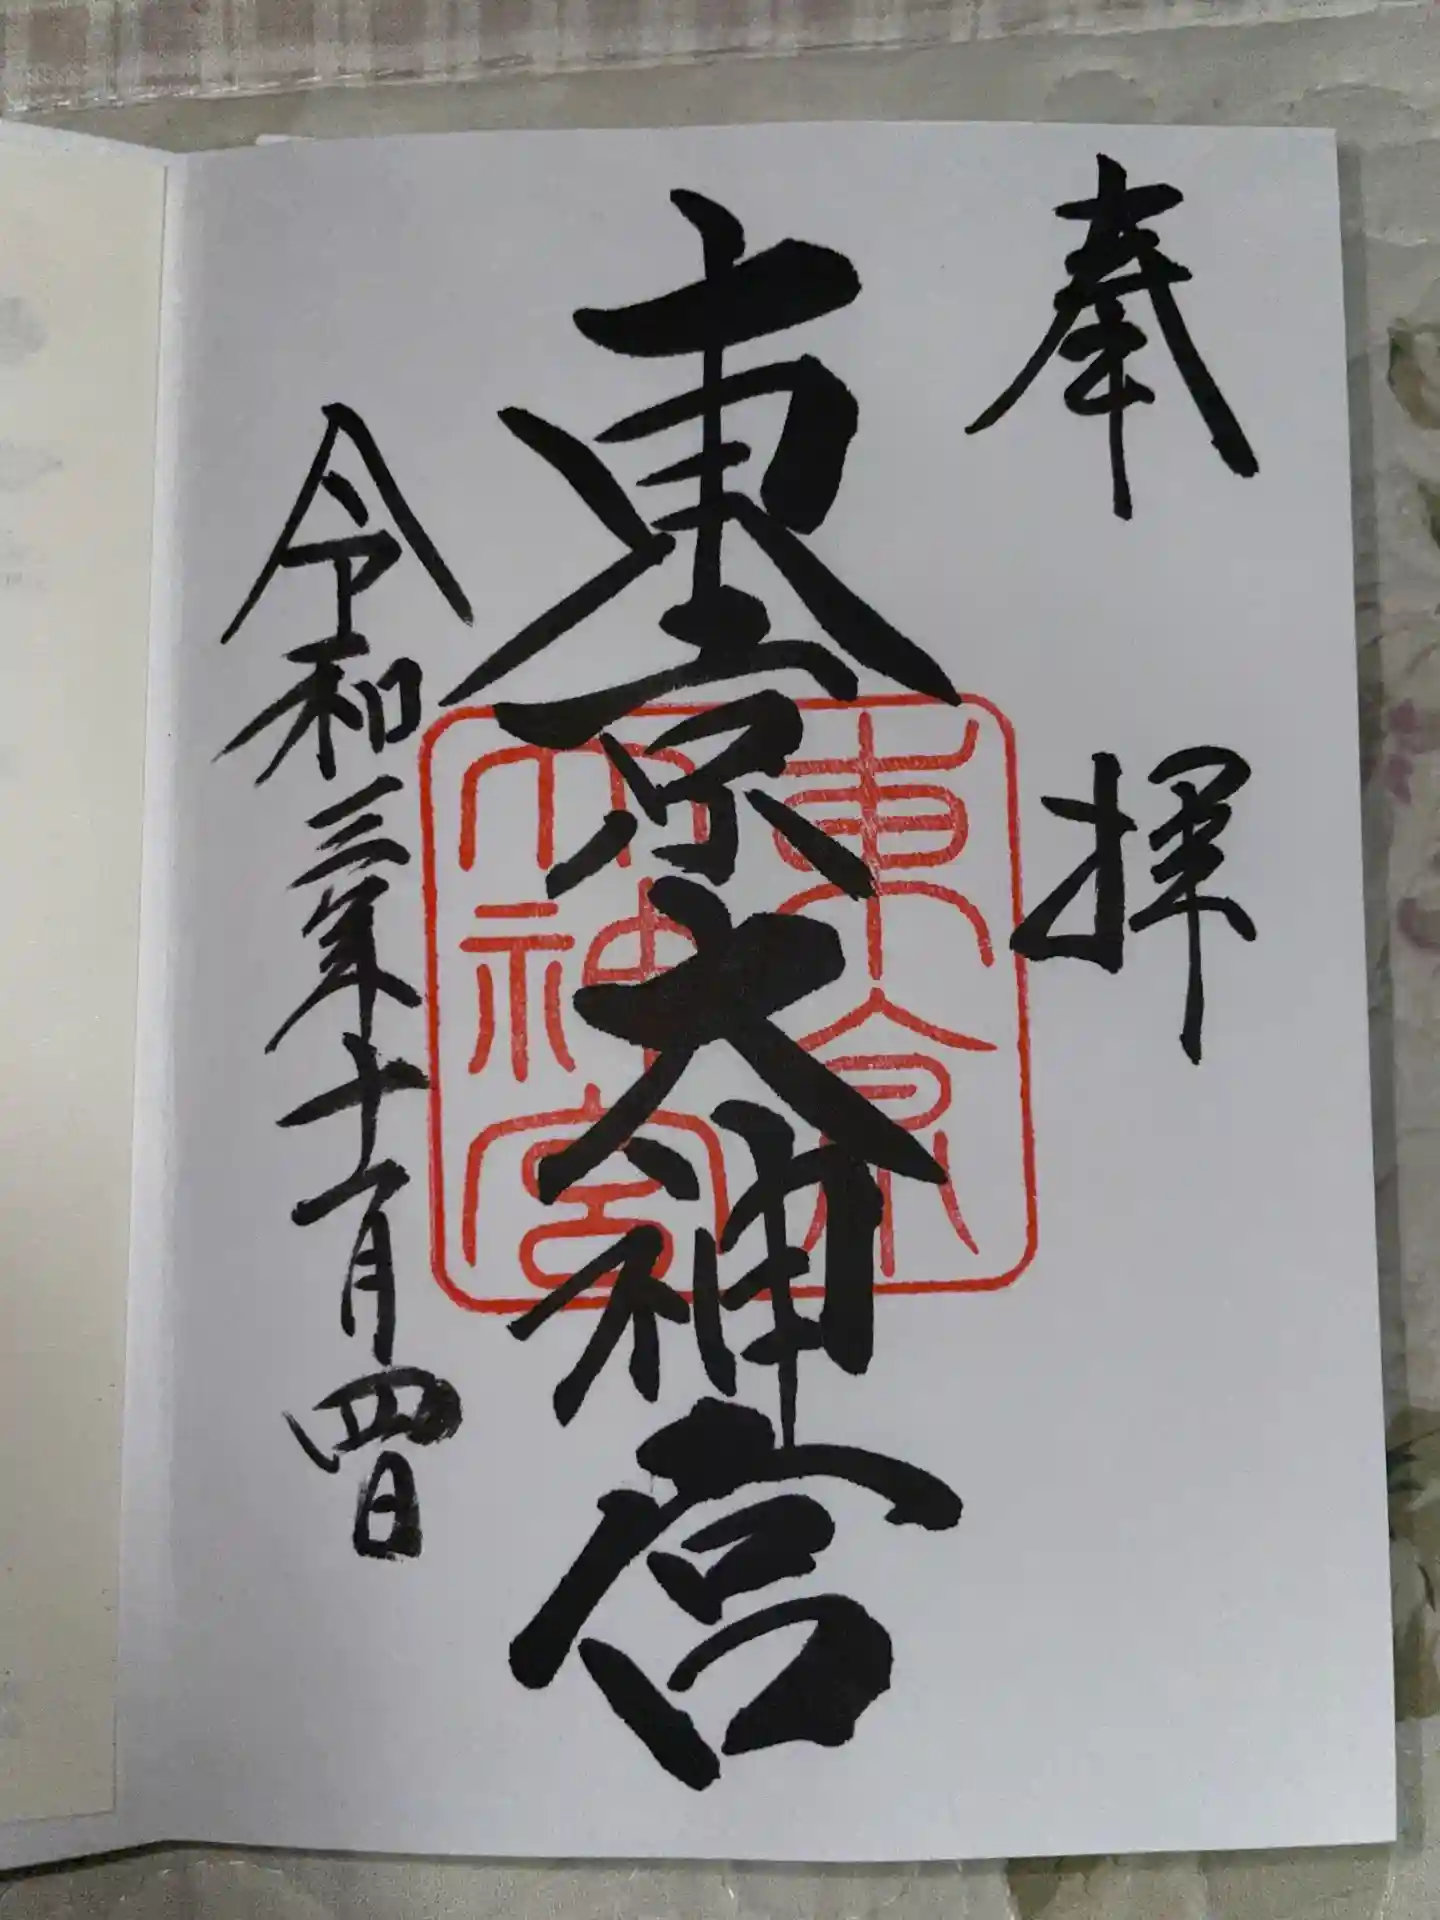 奉拝
東京大神宮
東京
大神宮
令和三年十一月四日